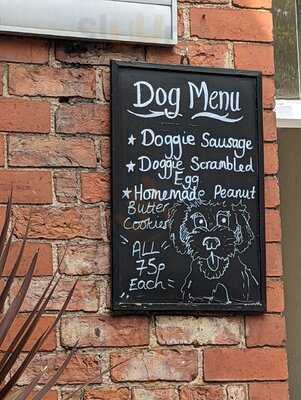 Dog Menu
★ Doggie Sausage
★ Doggie Scrambled
Egg
★ Homemade Peanut
Butter
Cookies
ALL
75p
Each